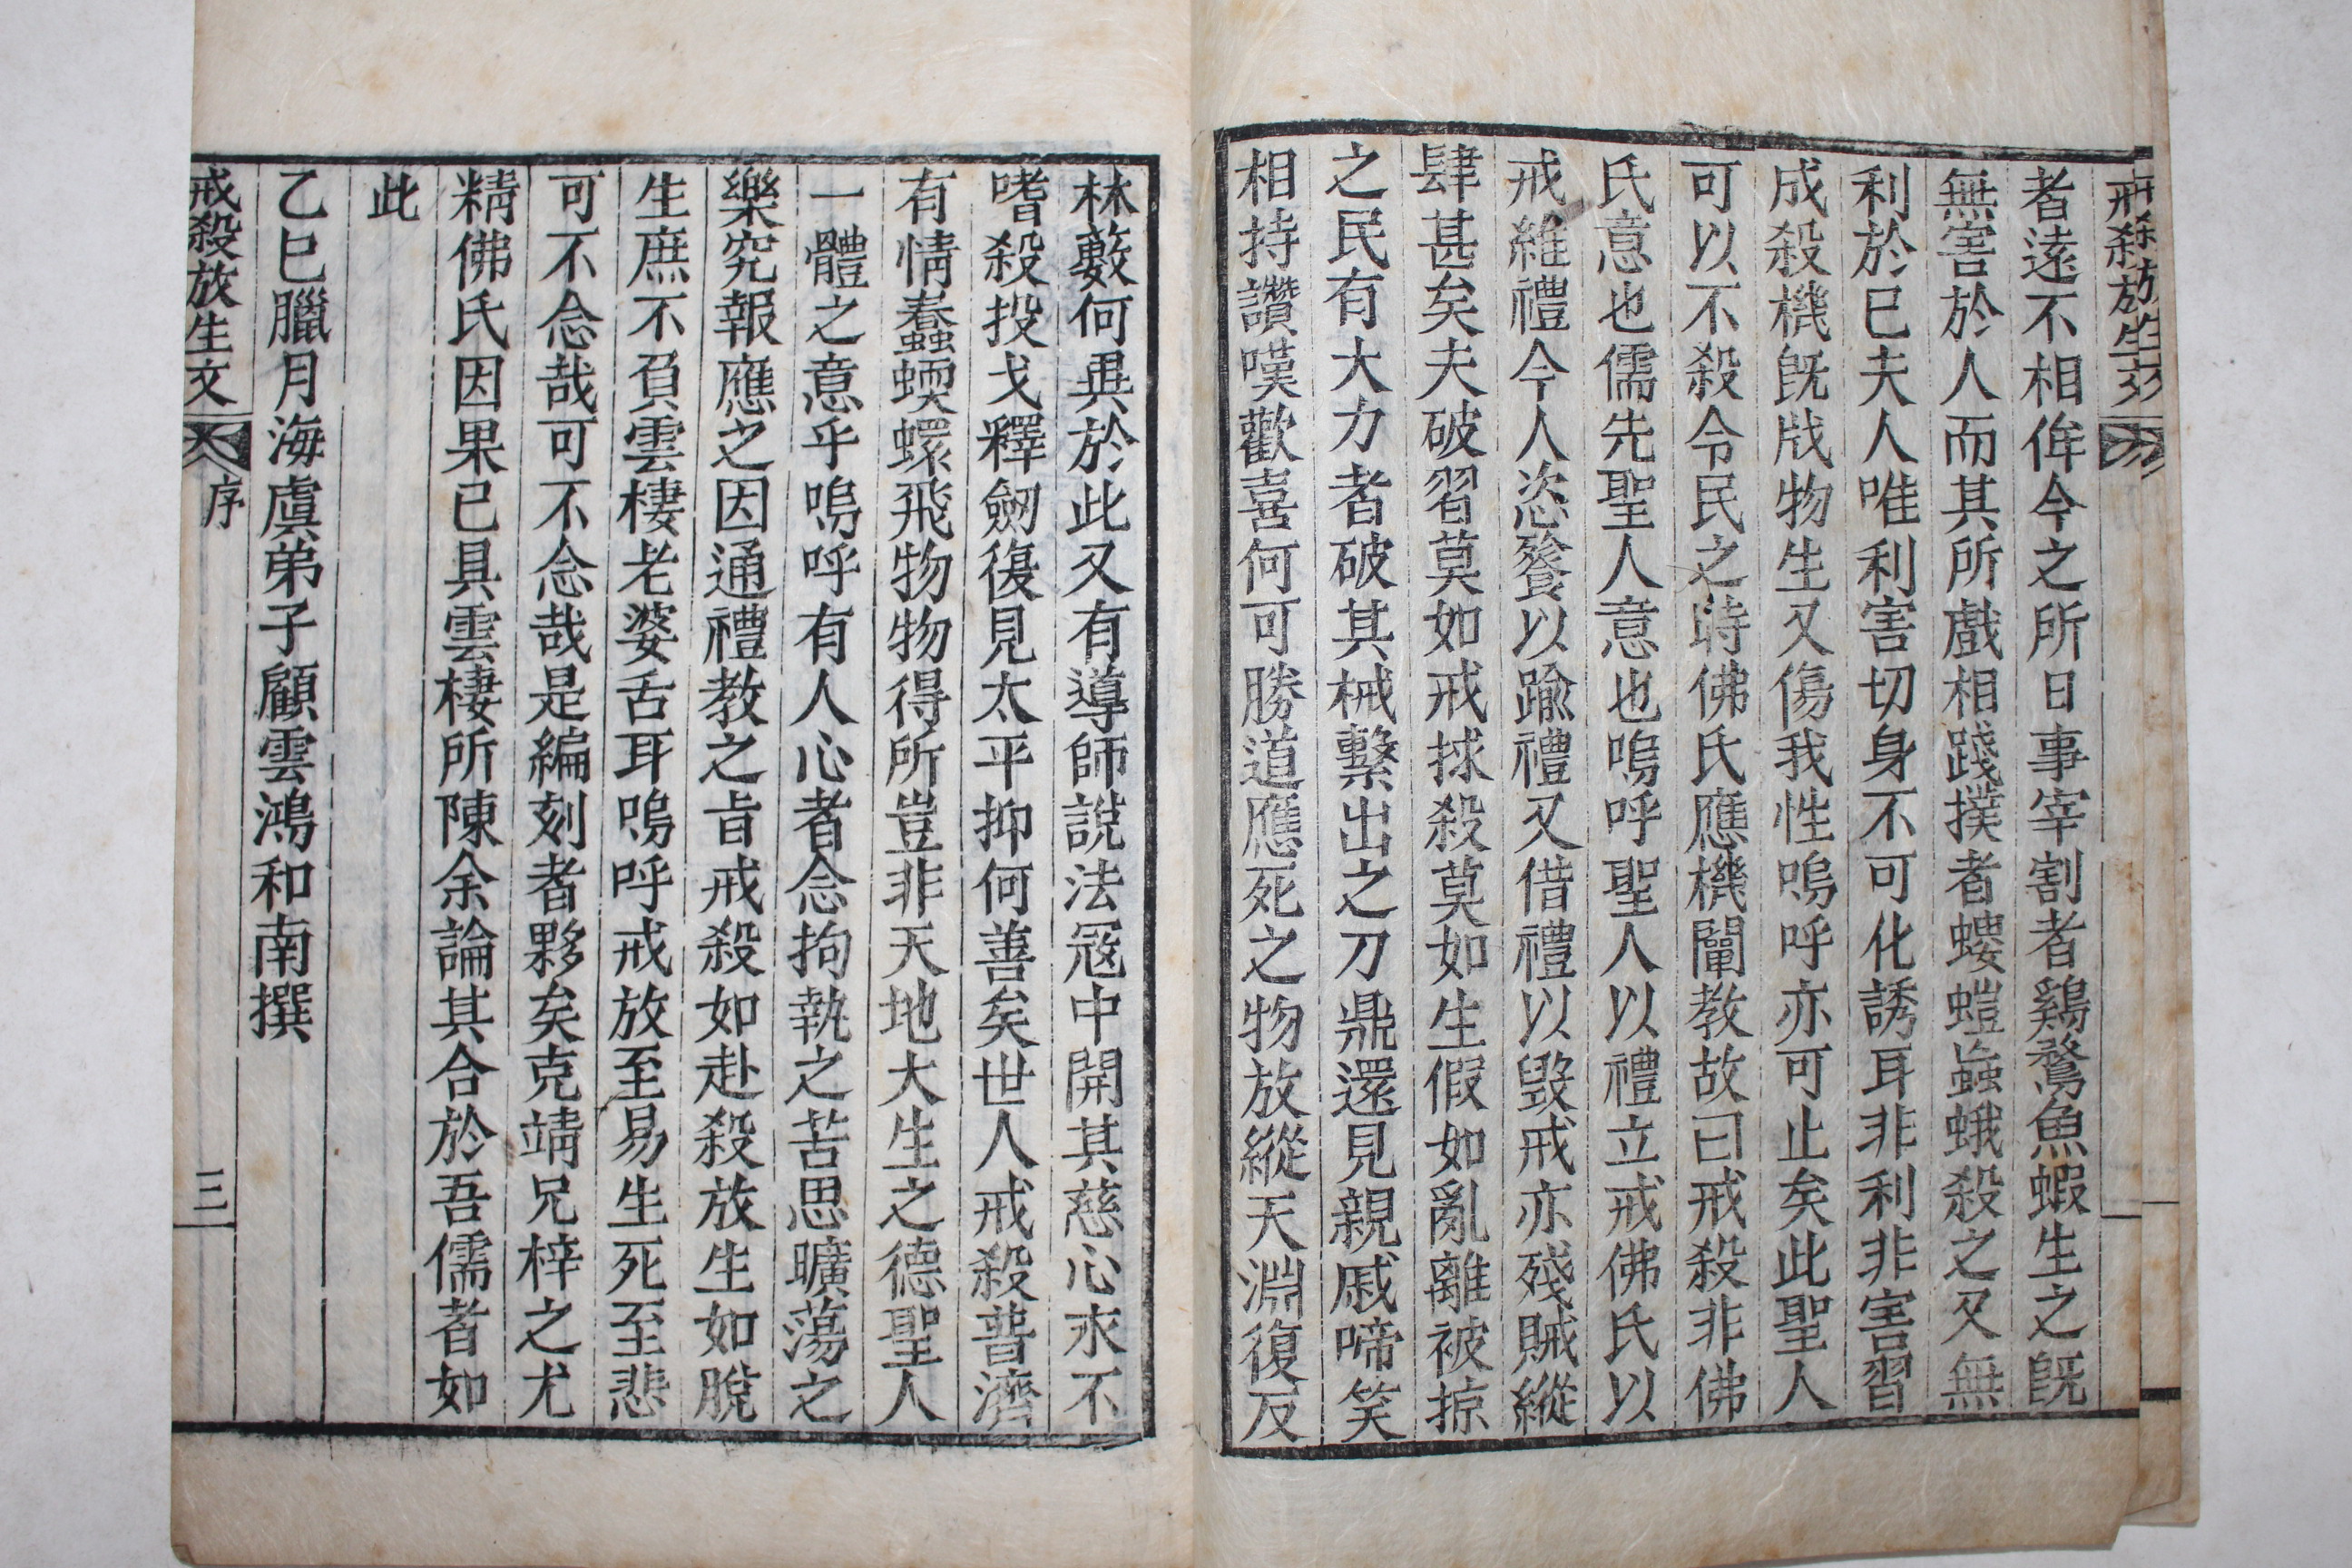 戒殺放生文
者遠不相侔今之所日事宰割者鷄鶩魚蝦生之旣
無害於人而其所戲相踐撲者螻螘蝱蛾殺之又無
利於己夫人唯利害切身不可化誘耳非利非害習
成殺機旣戕物生又傷我性嗚呼亦可止矣此聖人
可以不殺令民之時佛氏應機闡教故曰戒殺非佛
氏意也儒先聖人意也嗚呼聖人以禮立戒佛氏以
戒維禮今人恣饕以踰禮又借禮以毀戒亦殘賊縱
肆甚矣夫破習莫如戒捄殺莫如生假如亂離被掠
之民有大力者破其械繫出之刀鼎還見親戚啼笑
相持讚嘆歡喜何可勝道應死之物放縱天淵復反
林藪何異於此又有導師說法寇中開其慈心永不
嗜殺投戈釋劒復見太平抑何善矣世人戒殺普濟
有情蠢蝡蠉飛物物得所豈非天地大生之德聖人
一體之意乎嗚呼有人心者念拘執之苦思曠蕩之
樂究報應之因通禮教之旨戒殺如赴殺放生如脫
生庶不負雲棲老婆舌耳嗚呼戒放至易生死至悲
可不念哉可不念哉是編刻者夥矣克靖兄梓之尤
精佛氏因果已具雲棲所陳余論其合於吾儒者如
此
乙巳臘月海虞弟子顧雲鴻和南撰
戒殺放生文 序 三